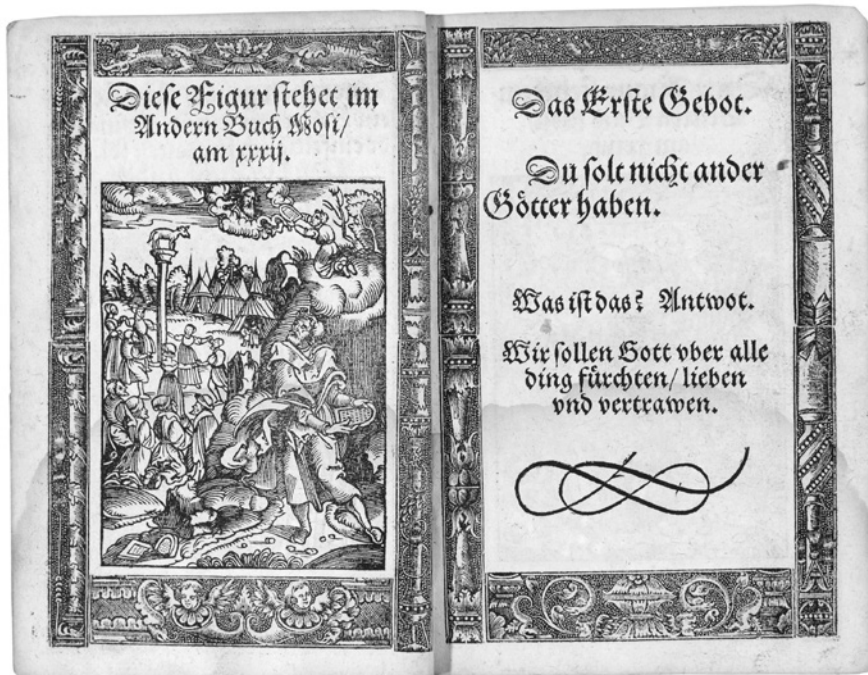 Diese Figur stehet im
Andern Buch Mosi/
am xxxij.
Das Erste Gebot.
Du solt nicht ander
Götter haben.
Was ist das? Antwot.
Wir sollen Gott vber alle
ding fürchten/ lieben
vnd vertrawen.